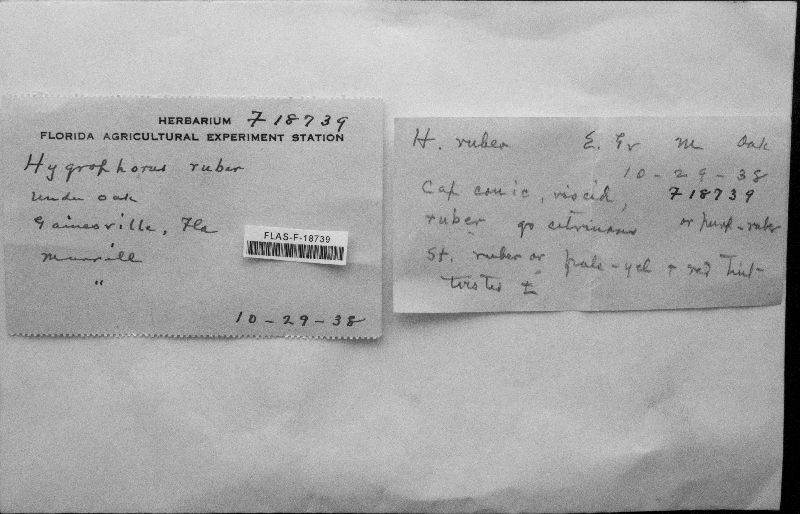 HERBARIUM F18739
FLORIDA AGRICULTURAL EXPERIMENT STATION
Hygrophorus ruber
Under oak
Gainesville, Fla
Murrill
"
10-29-38
FLAS-F-18739
H. ruber E. Gr M Oak
10-29-38
Cap conic, viscid, F18739
ruber go citrinus or purp-ruber
St. ruber or pale-yel + red tint-
twisted ±